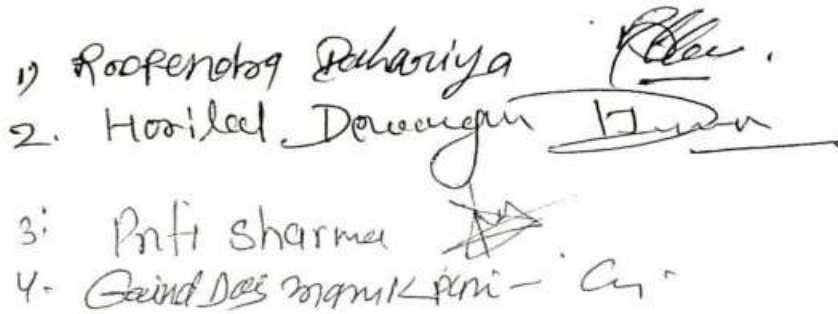 1) Roopendra Dahariya
2. Horilal Dewangan
3: Priti Sharma
4- Govind Das manikpuri -